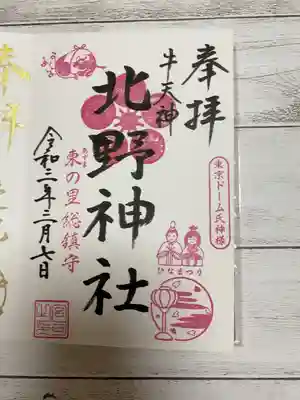 奉拝
牛天神
北野神社
東京ドーム氏神様
ひなまつり
あずま
東の里総鎮守
令和二年二月七日
奉拝